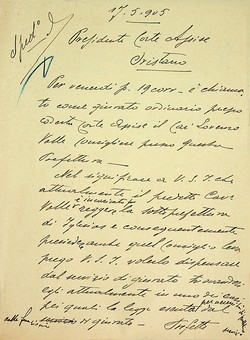 17.5.905
Sped.
Presidente Corte Assise
Oristano
Per venerdì p. 19 corr. è chiama
to come giurato ordinario presso
codesta Corte d'Assise il Cav. Lorenzo
Valle Consigliere presso questa
Prefettura —
Nel significare a V. S. I. che
attualmente il predetto Cav.
Valle è incaricato reggere la sottoprefettura
di Iglesias e conseguentemente
presiede anche quel Consiglio Leva
prego V. S. I. volerlo dispensare
dal servizio di giurato trovando
si attualmente in uno dei casi
pei quali la legge esenta dal
nelle funzioni di giurato — Prefetto